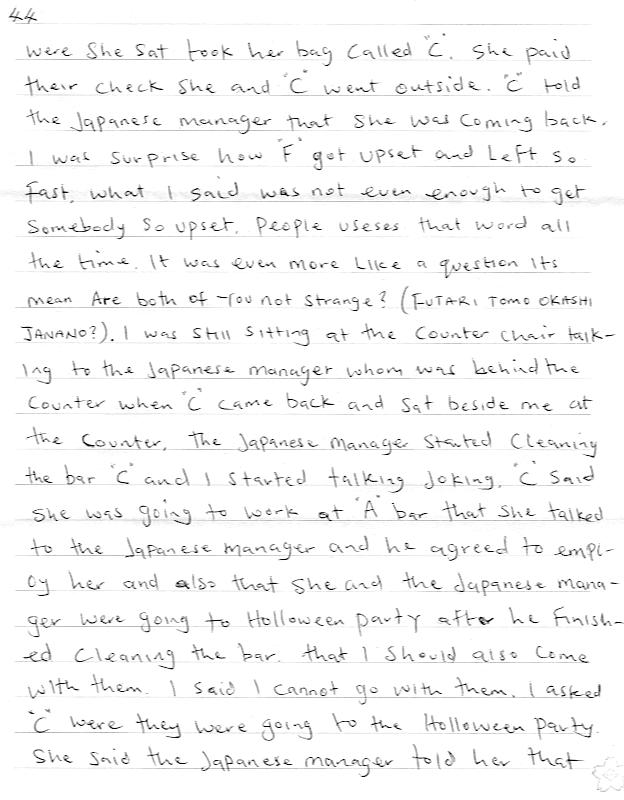 44
were She Sat took her bag Called "C". She paid
their check She and "C" went outside. "C" told
the Japanese manager that She was Coming back.
I was Surprise how "F" got upset and Left So
Fast, what I said was not even enough to get
Somebody So upset. People useses that word all
the time. It was even more Like a question Its
mean Are both of You not Strange? (FUTARI TOMO OKASHI
JANANO?). I was Still Sitting at the Counter Chair talk-
Ing to the Japanese manager whom was behind the
Counter when "C" came back and Sat beside me at
the Counter. The Japanese manager Started Cleaning
the bar "C" and I Started talking Joking. "C" Said
She was going to work at "A" bar that She talked
to the Japanese manager and he agreed to empl-
oy her and also that She and the Japanese mana-
ger were going to Holloween party after he Finish-
ed Cleaning the bar. that I Should also Come
with them. I said I cannot go with them. I asked
"C" were they were going to the Holloween Party.
She Said the Japanese manager told her that